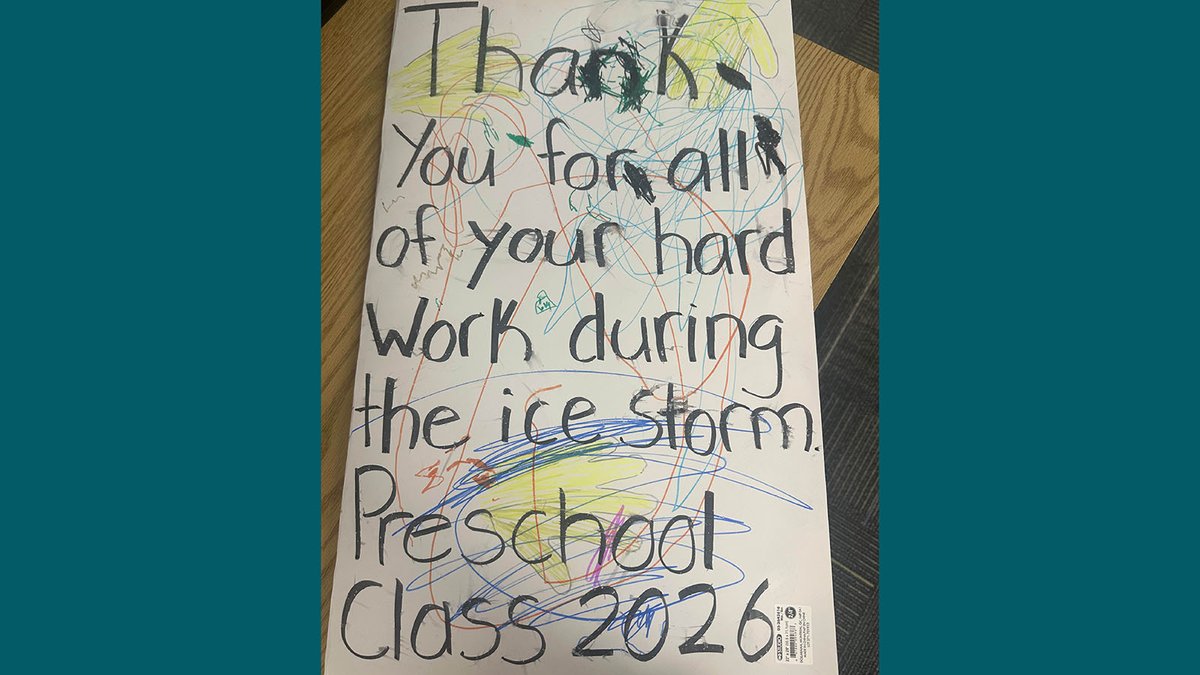 Thank
You for all
of your hard
Work during
the ice storm.
Preschool
Class 2026